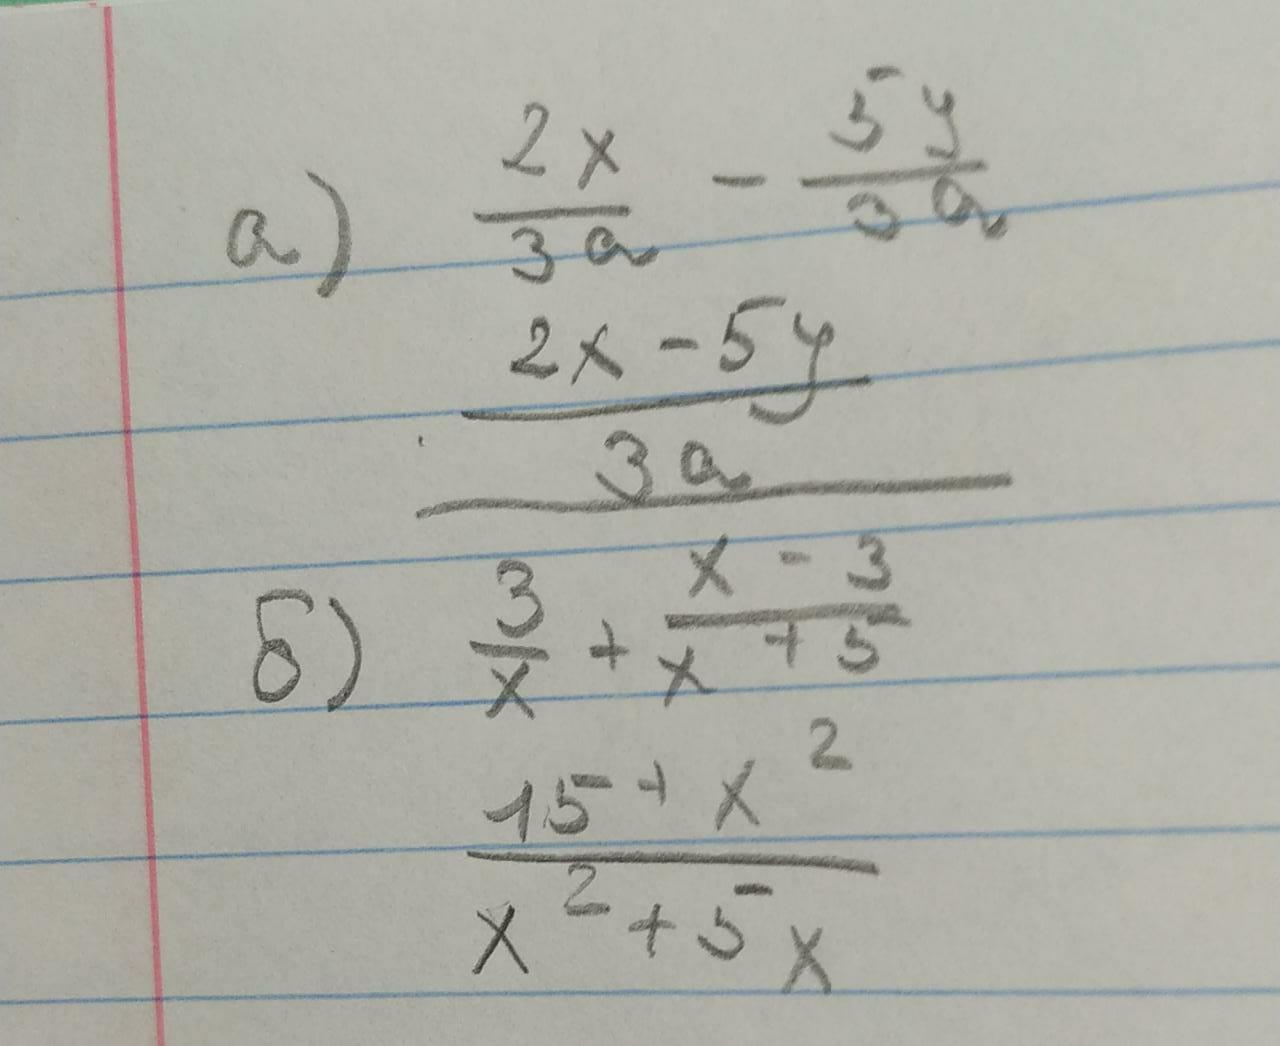 а) \frac{2x}{3a} - \frac{5y}{3a}
\frac{2x - 5y}{3a}
б) \frac{3}{x} + \frac{x - 3}{x + 5}
\frac{15 + x^2}{x^2 + 5x}